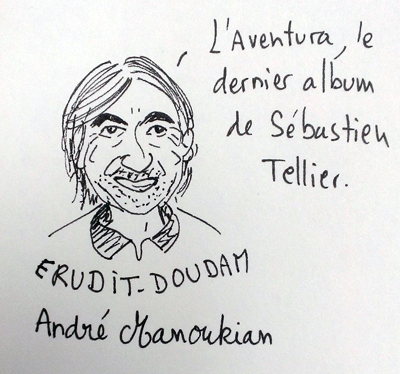 L'Aventura, le
dernier album
de Sébastien
Tellier.
ERUDiT-DOUDAM
André Manoukian